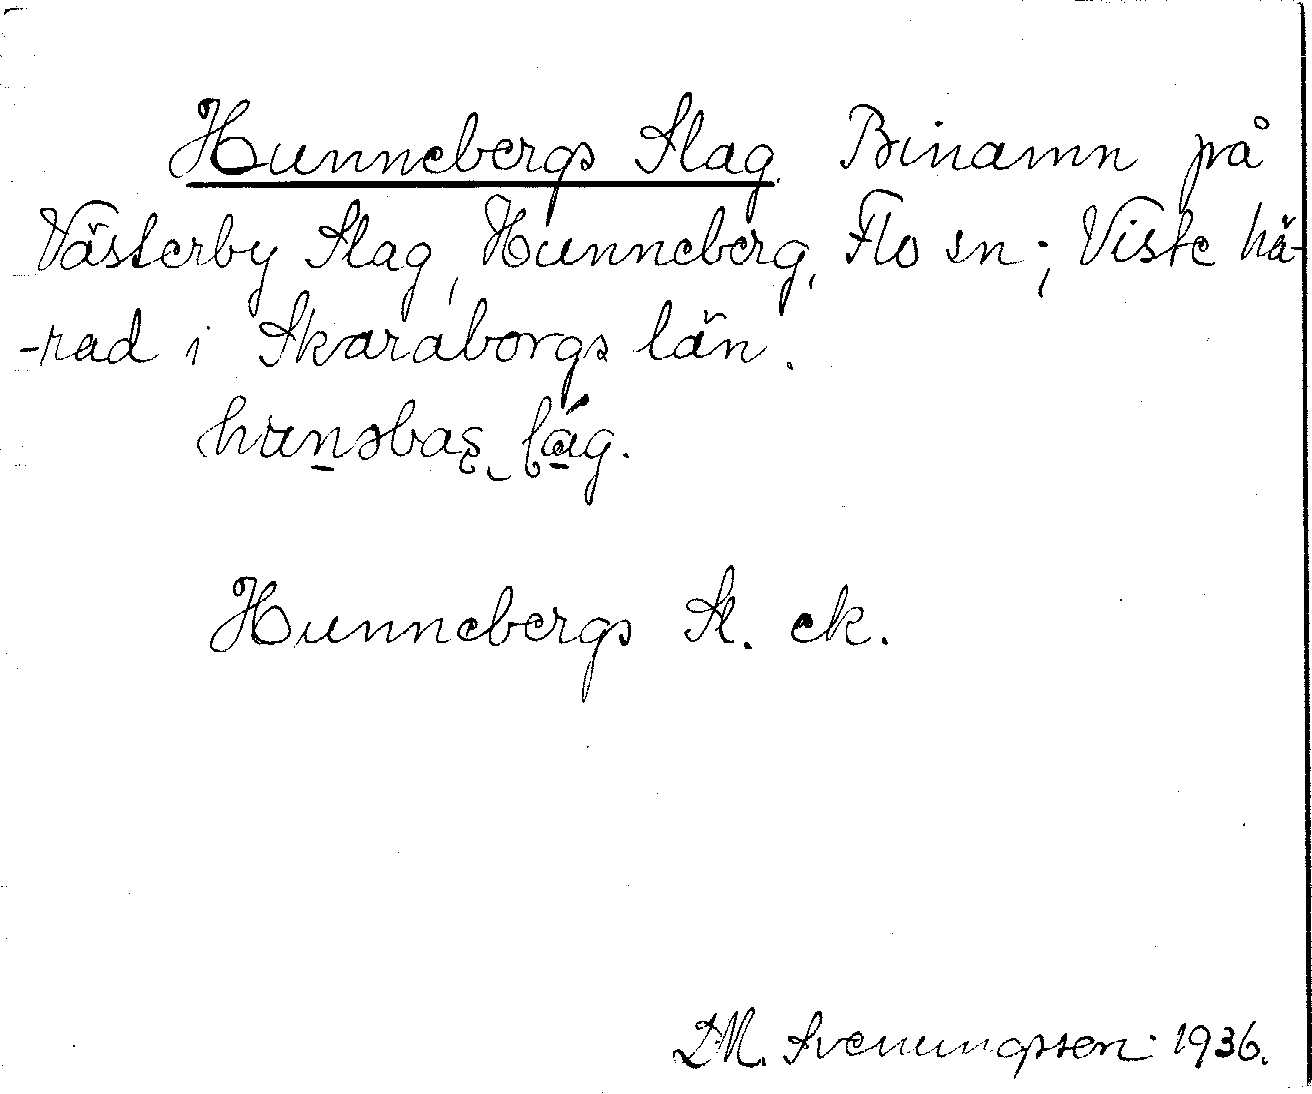 Hunnebergs Slag. Binamn på
Västerby Slag, Hunneberg, Flo sn; Viste hä-
-rad i Skaraborgs län.
Hunnebergs Sl. ek.
D.M. Svenungsson 1936.